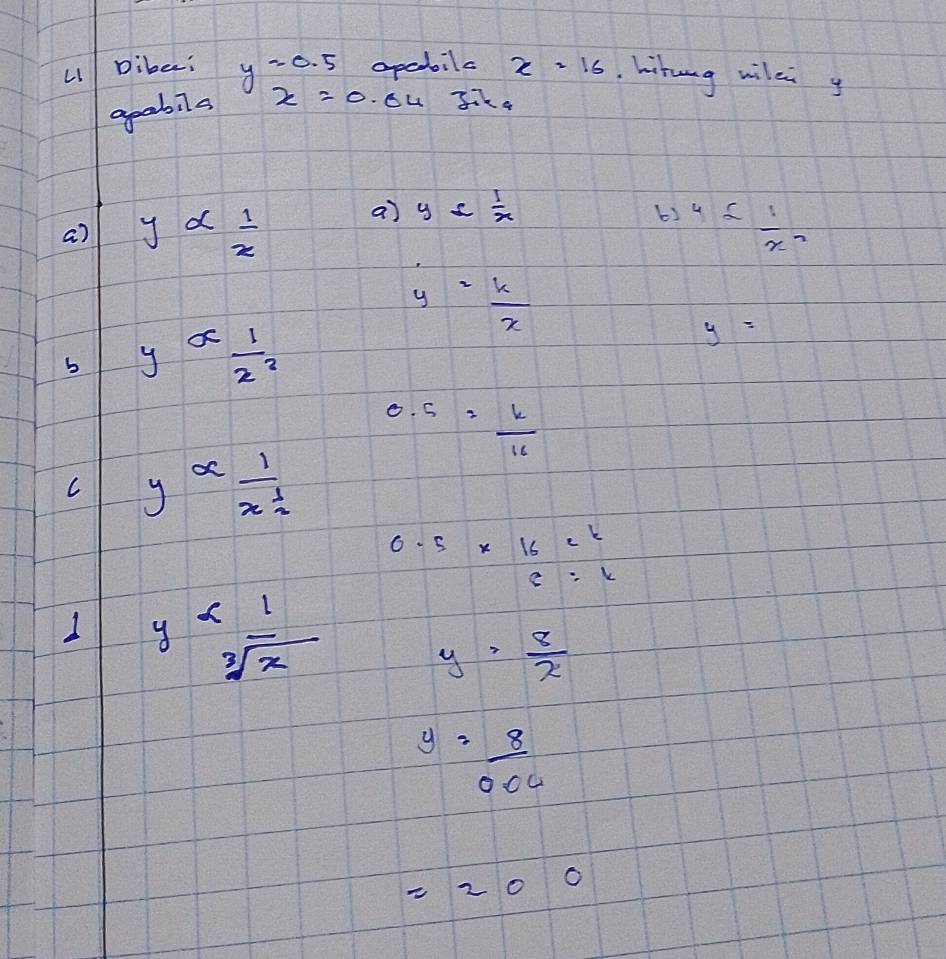 4 Diberi y = 0.5 apabila x = 16. hitung nilai y
apabila x = 0.04 jika
a) y ∝ 1/x
b y ∝ 1/x²
c y ∝ 1/x^½
d y ∝ 1/∛x
a) y ∝ 1/x
y = k/x
0.5 = k/16
0.5 × 16 = k
8 = k
y = 8/x
y = 8/0.04
= 200
b) y ∝ 1/x²
y =